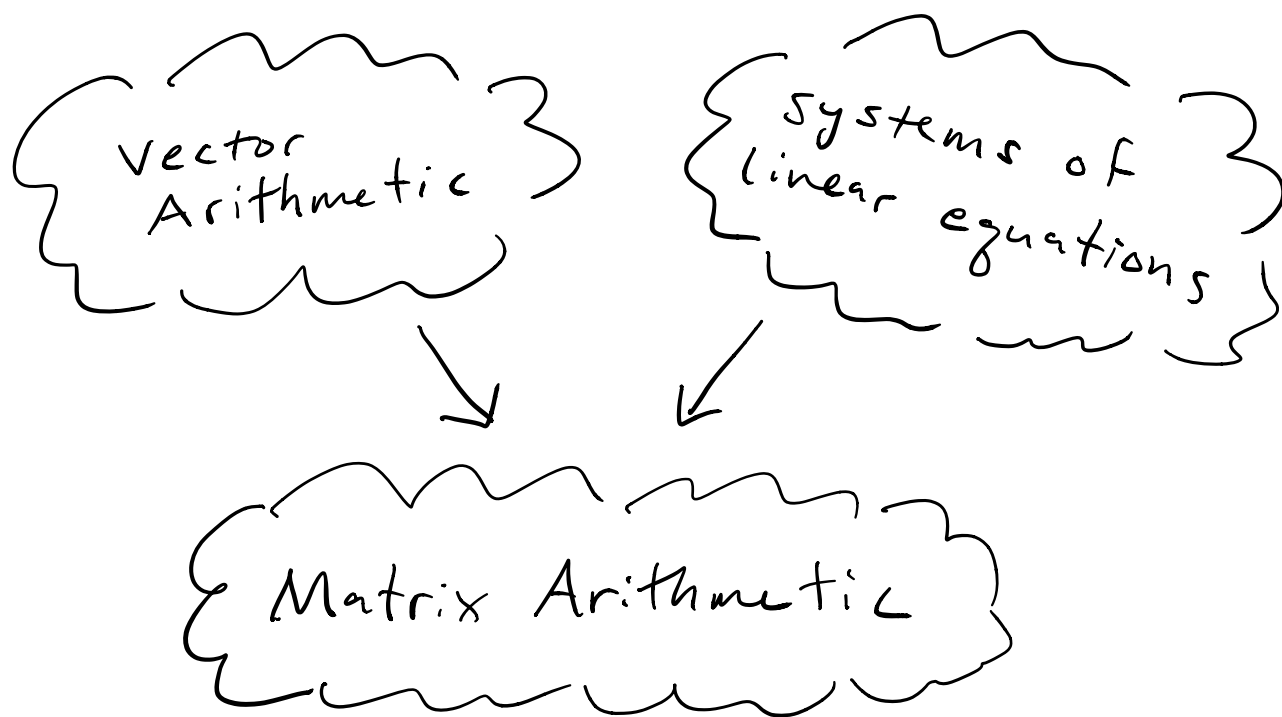 Vector
Arithmetic
systems of
linear equations
Matrix Arithmetic